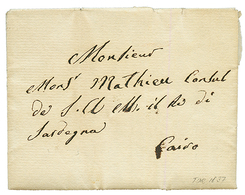 Monsieur
Mons.r Mathieu Consul
de S. M. il Re di
Sardegna
Cairo